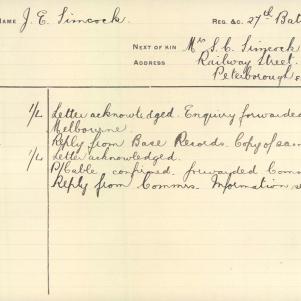 NAME J. E. Simcock. REG. &C. 27th Bat
NEXT OF KIN Mrs S. C. Simcock
ADDRESS Railway Street.
Peterborough
1/2 Letter acknowledged. Enquiry forwarde
Melbourne
Reply from Base Records. Copy of sam
1/2 Letter acknowledged.
P/Cable confirmed. forwarded Comm
Reply from Commrs. Information s